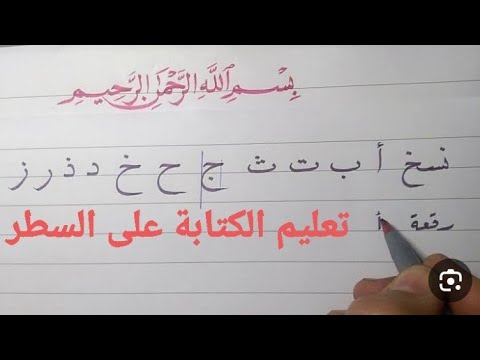 بِسْمِ ٱللَّهِ الرَّحْمَٰنِ الرَّحِيمِ
نسخ أ ب ت ث ج ح خ د ذ ر ز
رقعة أ
تعليم الكتابة على السطر